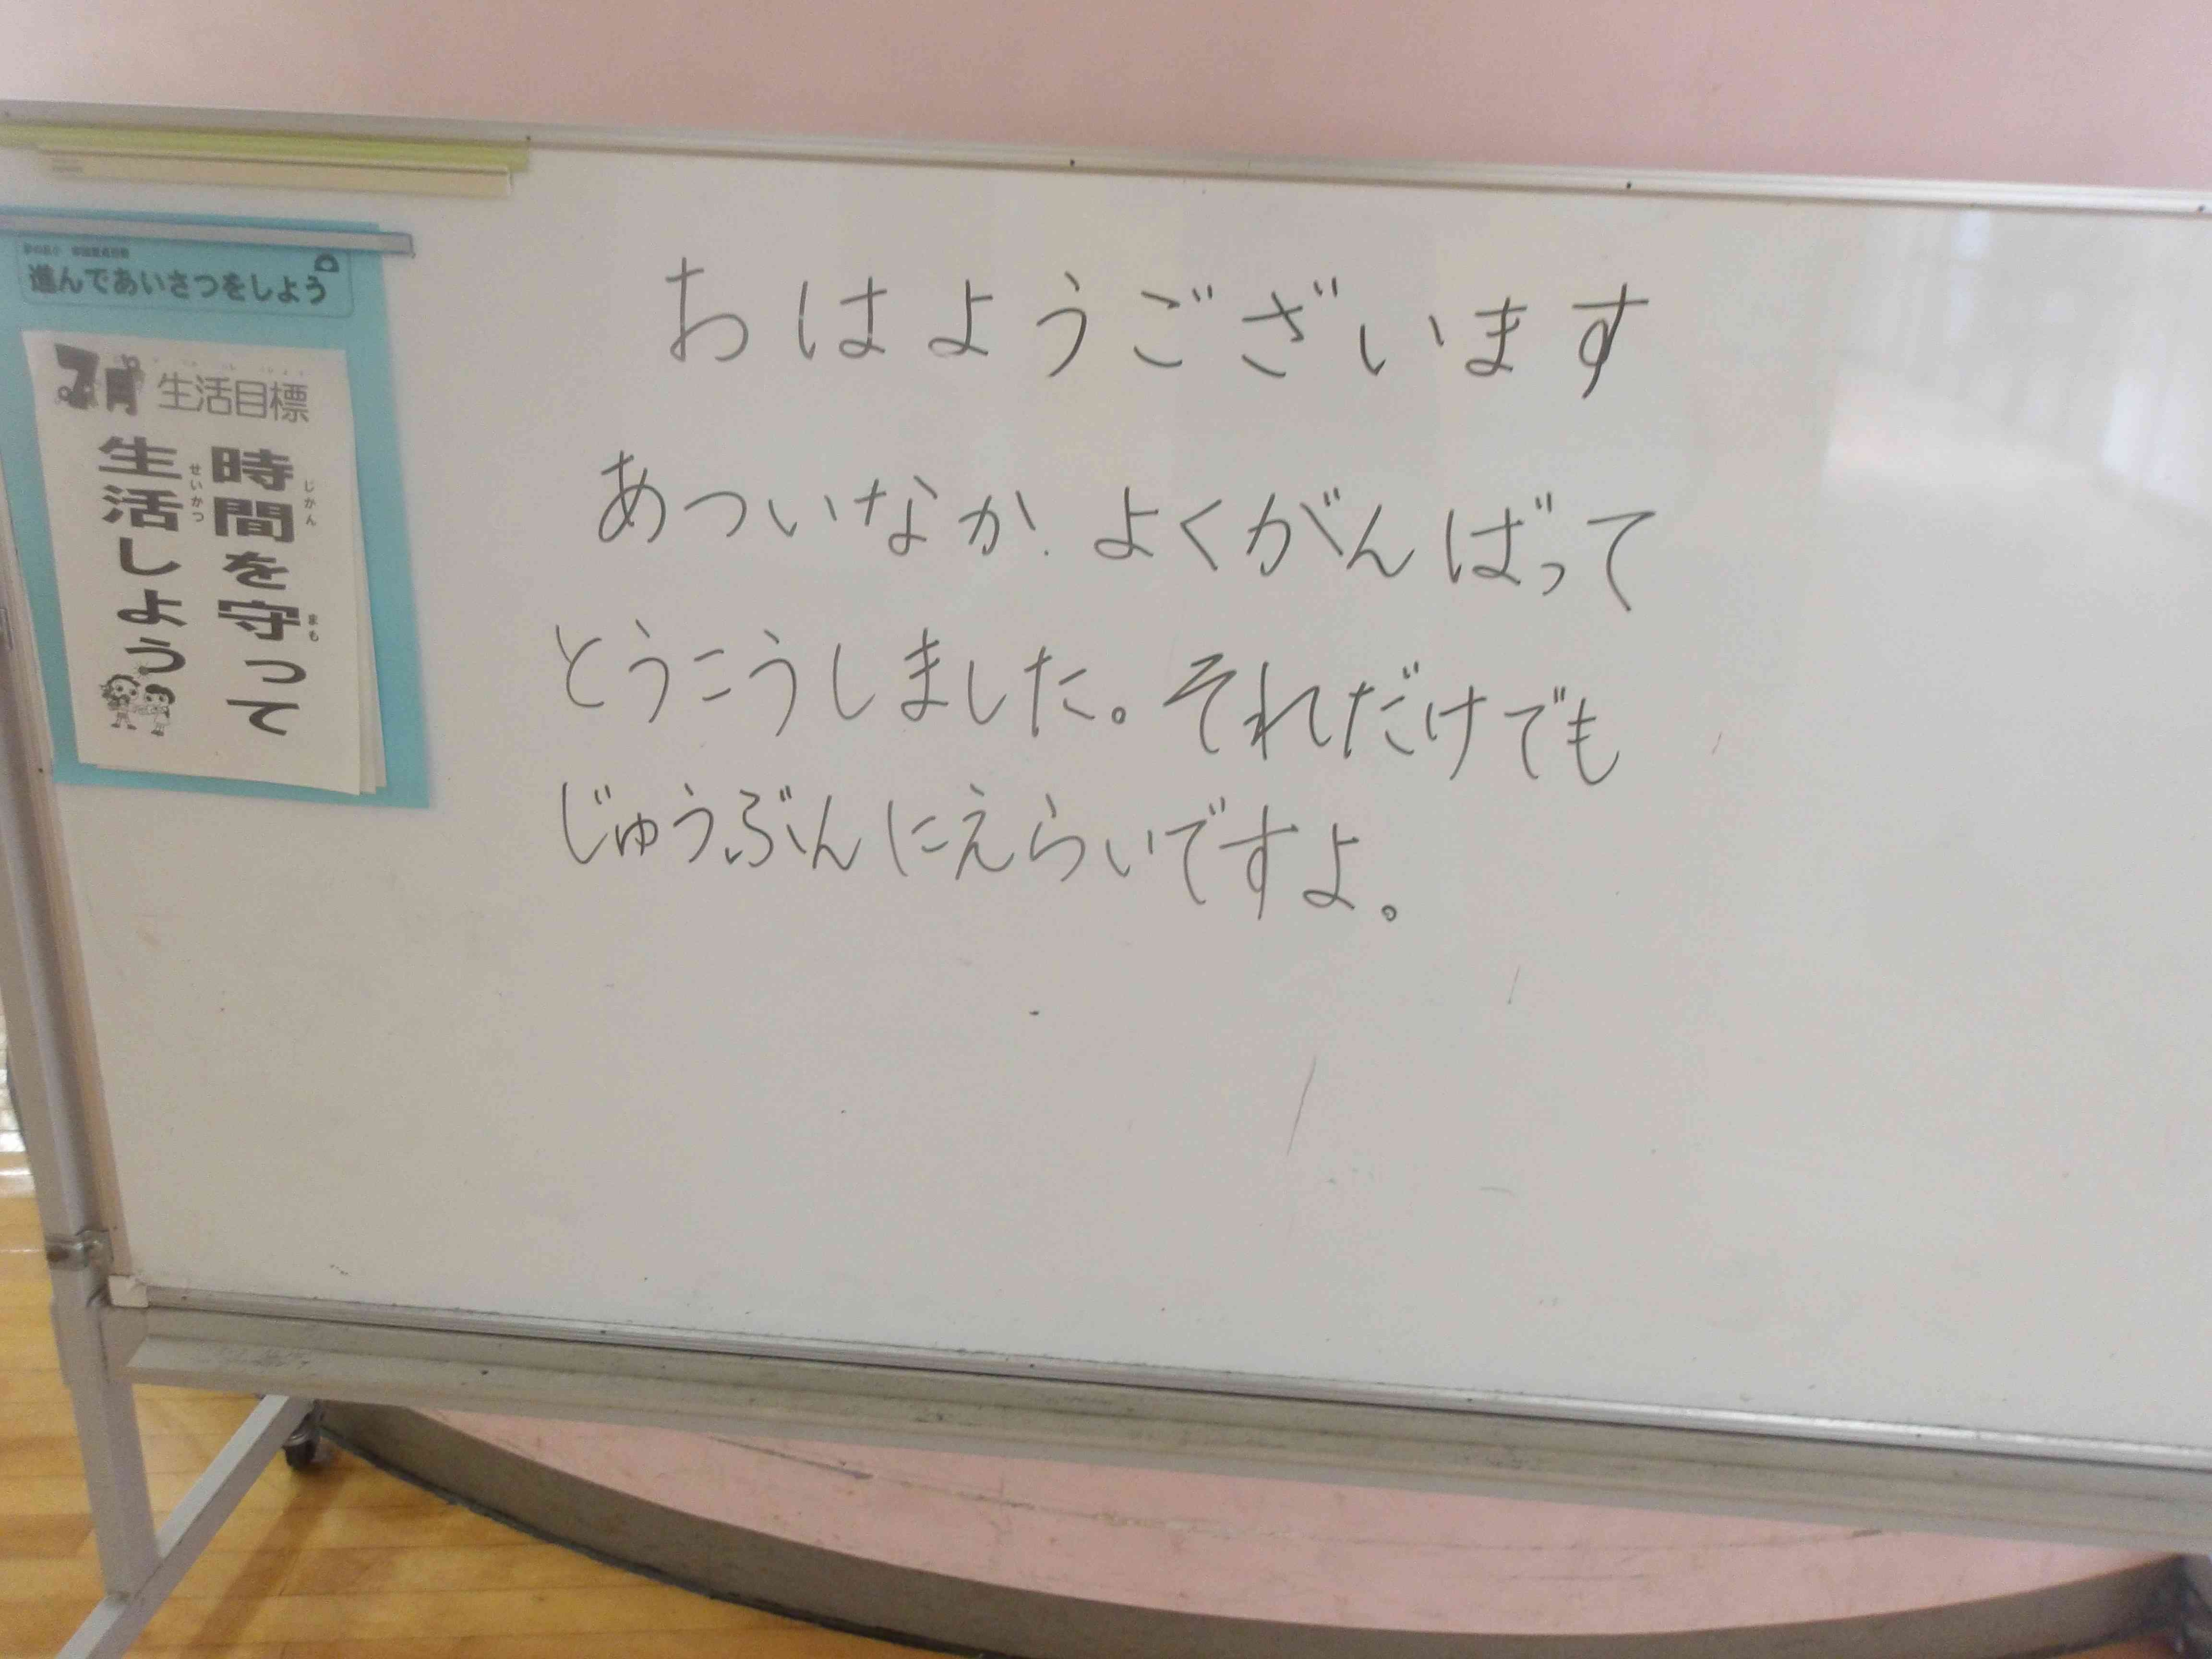 進んであいさつをしよう
7月 生活目標
時間を守って
じかん
まも
生活しよう
せいかつ
おはようございます
あついなか、よくがんばって
とうこうしました。それだけでも
じゅうぶんにえらいですよ。